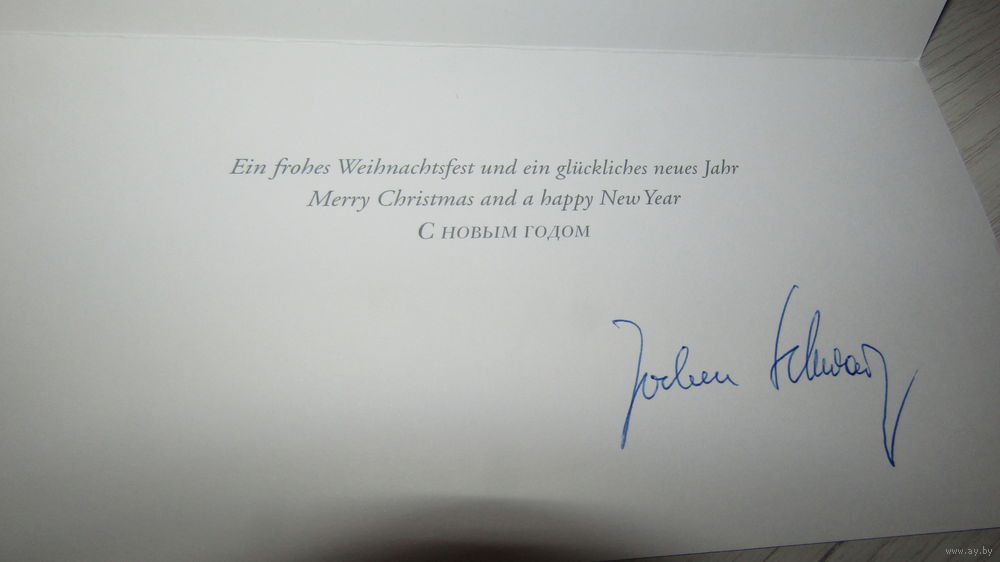 Ein frohes Weihnachtsfest und ein glückliches neues Jahr
Merry Christmas and a happy New Year
С НОВЫМ ГОДОМ
Jochen Schwarz
www.ay.by